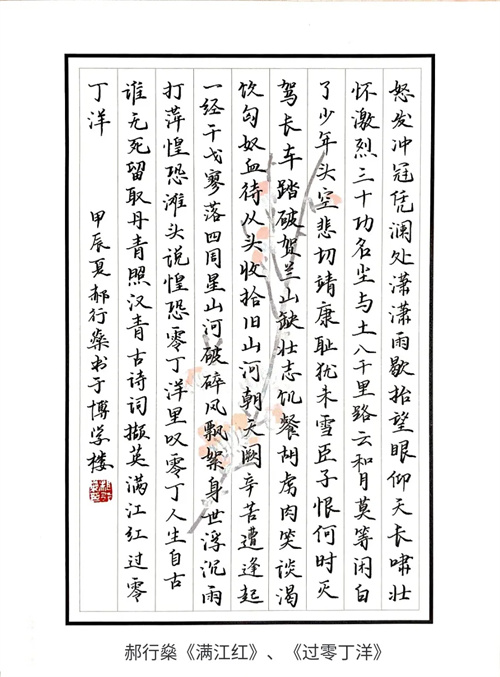 怒发冲冠凭澜处潇潇雨歇抬望眼仰天长啸壮
怀激烈三十功名尘与土八千里路云和月莫等闲白
了少年头空悲切靖康耻犹未雪臣子恨何时灭
驾长车踏破贺兰山缺壮志饥餐胡虏肉笑谈渴
饮匈奴血待从头收拾旧山河朝天阙辛苦遭逢起
一经干戈寥落四周星山河破碎风飘絮身世浮沉雨
打萍惶恐滩头说惶恐零丁洋里叹零丁人生自古
谁无死留取丹青照汉青古诗词撷英满江红过零
丁洋 甲辰夏郝行燊书于博学楼
郝行燊《满江红》、《过零丁洋》